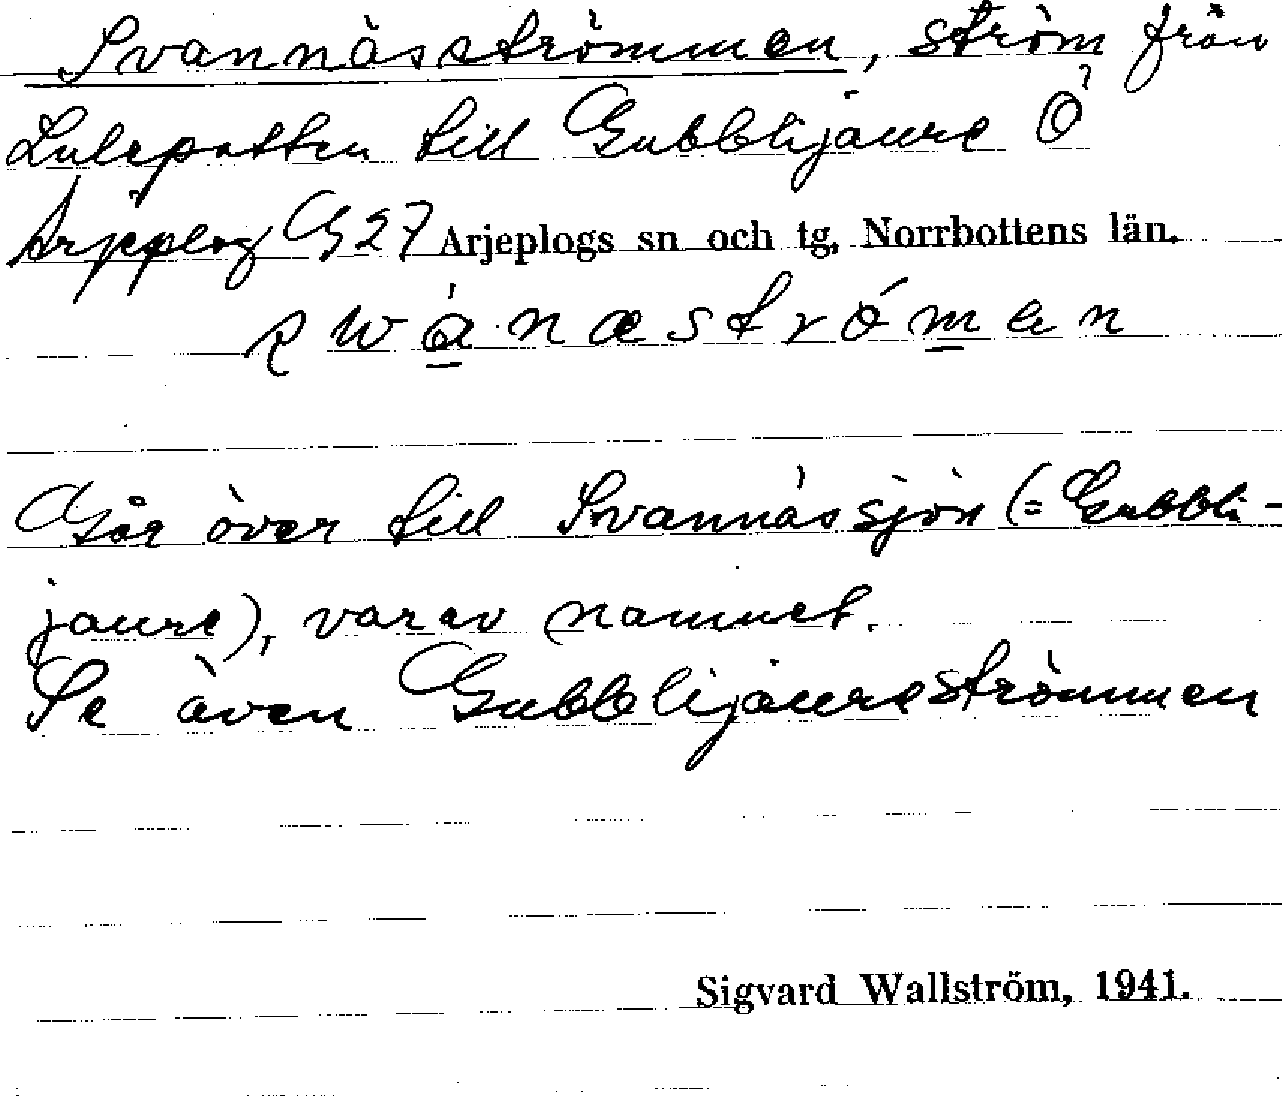 Svannäsströmmen, ström från
Lulepotten till Gubblijaure Ö
Arjeplog G 27 Arjeplogs sn och tg, Norrbottens län.
æ n
Går över till Svannässjön (= Gubbli-
jaure), varav namnet.
Se även Gubblijaureströmmen
Sigvard Wallström, 1941.